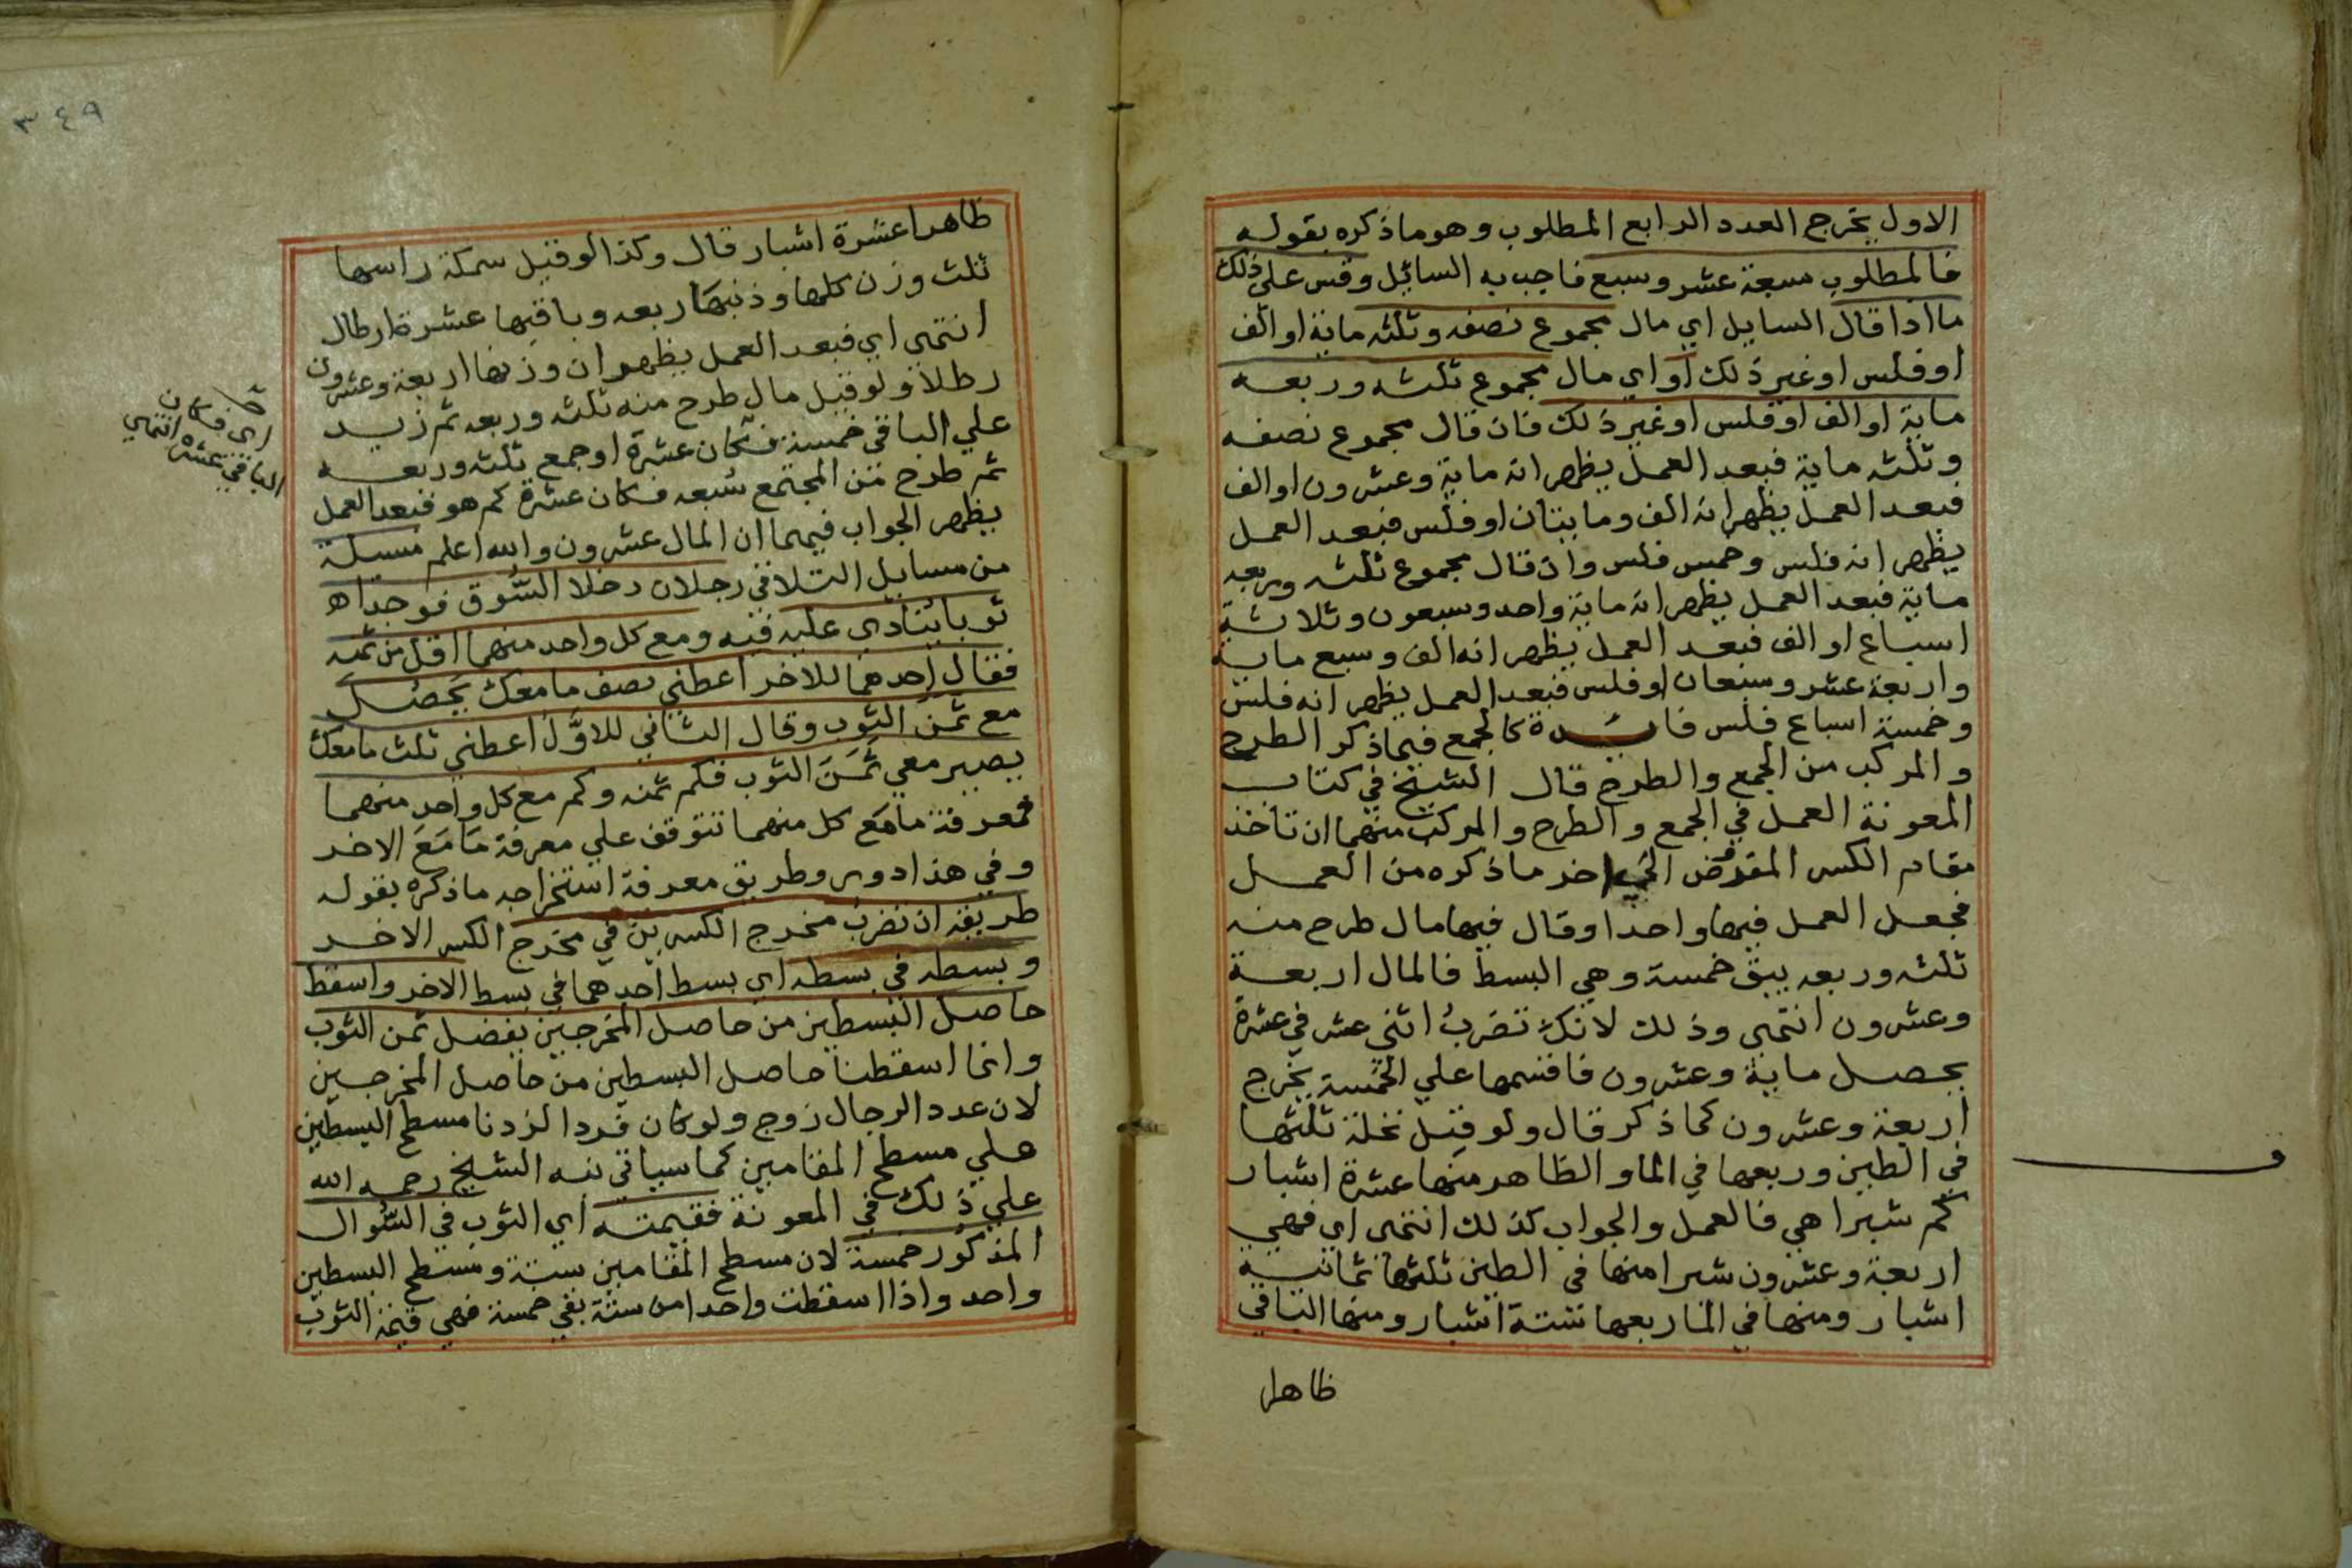 الاول يخرج العدد الرابع المطلوب وهو ما ذكره بقوله
فالمطلوب سبعة عشر وسبع فاجب به السائل وقس على ذلك
ما اذا قال السايل اي مال مجموع نصفه وثلثه ماية او الف
او فلس او غير ذلك او اي مال مجموع ثلثه وربعه
ماية او الف او فلس او غير ذلك فان قال مجموع نصفه
وثلثه ماية فبعد العمل يظهر انه ماية وعشرون او الف
فبعد العمل يظهر انه الف ومايتان او فلس فبعد العمل
يظهر انه فلس وخمس فلس وان قال مجموع ثلثه وربعه
ماية فبعد العمل يظهر انه ماية واحد وسبعون وثلاثة
اسباع او الف فبعد العمل يظهر انه الف وسبع ماية
واربعة عشر وسبعان او فلس فبعد العمل يظهر انه فلس
وخمسة اسباع فلس فائدة كالجمع فيما ذكر الطرح
والمركب من الجمع والطرح قال الشيخ في كتاب
المعونة العمل في الجمع والطرح والمركب منهما ان تاخذ
مقام الكسر المفروض الي اخر ما ذكره من العمل
فجعل العمل فيها واحدا وقال فيها مال طرح منه
ثلثه وربعه يبق خمسة وهي البسط فالمال اربعة
وعشرون انتهى وذلك لانك تضرب اثنى عشر في عشرة
يحصل ماية وعشرون فاقسمها علي الخمسة يخرج
اربعة وعشرون كما ذكر قال ولو قيل نخلة ثلثها
في الطين وربعها في الما والظاهر منها عشرة اشبار
كم شبرا هي فالعمل والجواب كذلك انتهى اي فهي
اربعة وعشرون شبرا منها في الطين ثلثها ثمانية
اشبار ومنها في الما ربعها ستة اشبار ومنها الباقي
ظاهرا
ف
٣٤٩
ظاهرا عشرة اشبار قال وكذا لو قيل سمكة راسها
ثلث وزن كلها وذنبها ربعه وباقيها عشرة ارطال
انتهى اي فبعد العمل يظهر ان وزنها اربعة وعشرون
رطلا ولو قيل مال طرح منه ثلثه وربعه ثم زيد
علي الباقي خمسة فكان عشرة او جمع ثلثه وربعه
ثم طرح من المجتمع سُبعه فكان عشرة كم هو فبعد العمل
يظهر الجواب فيهما ان المال عشرون والله اعلم مسيلة
من مسايل التلاقي رجلان دخلا السُّوق فوجداه
ثوبا ينادى عليه فيه ومع كل واحد منهما اقل من ثمنه
فقال احدهما للاخر اعطني نصف ما معك يحصل
مع ثمن الثوب وقال الثاني للاوّل اعطني ثلث ما معك
يصير معي ثمن الثوب فكم ثمنه وكم مع كل واحد منهما
فمعرفة ما مع كل منهما تتوقف علي معرفة ما مع الاخر
وفي هذا دور وطريق معرفة استخراجه ما ذكره بقوله
طريقه ان تضرب مخرج الكسرين في مخرج الكسر الاخر
وبسطه في بسطه اي بسط احدهما في بسط الاخر واسقط
حاصل البسطين من حاصل المخرجين يفضل ثمن الثوب
وانما اسقطنا حاصل البسطين من حاصل المخرجين
لان عدد الرجال زوج ولو كان فردا لزدنا مسطح البسطين
علي مسطح المقامين كما سياتي نبه الشيخ رحمه الله
علي ذلك في المعونة فقيمته اي الثوب في السُّوال
المذكور خمسة لان مسطح المقامين ستة ومسطح البسطين
واحد واذا اسقطت واحدا من ستة بقي خمسة فهي قيمة الثوب
اى فكان
الباقي عشرة انتهى